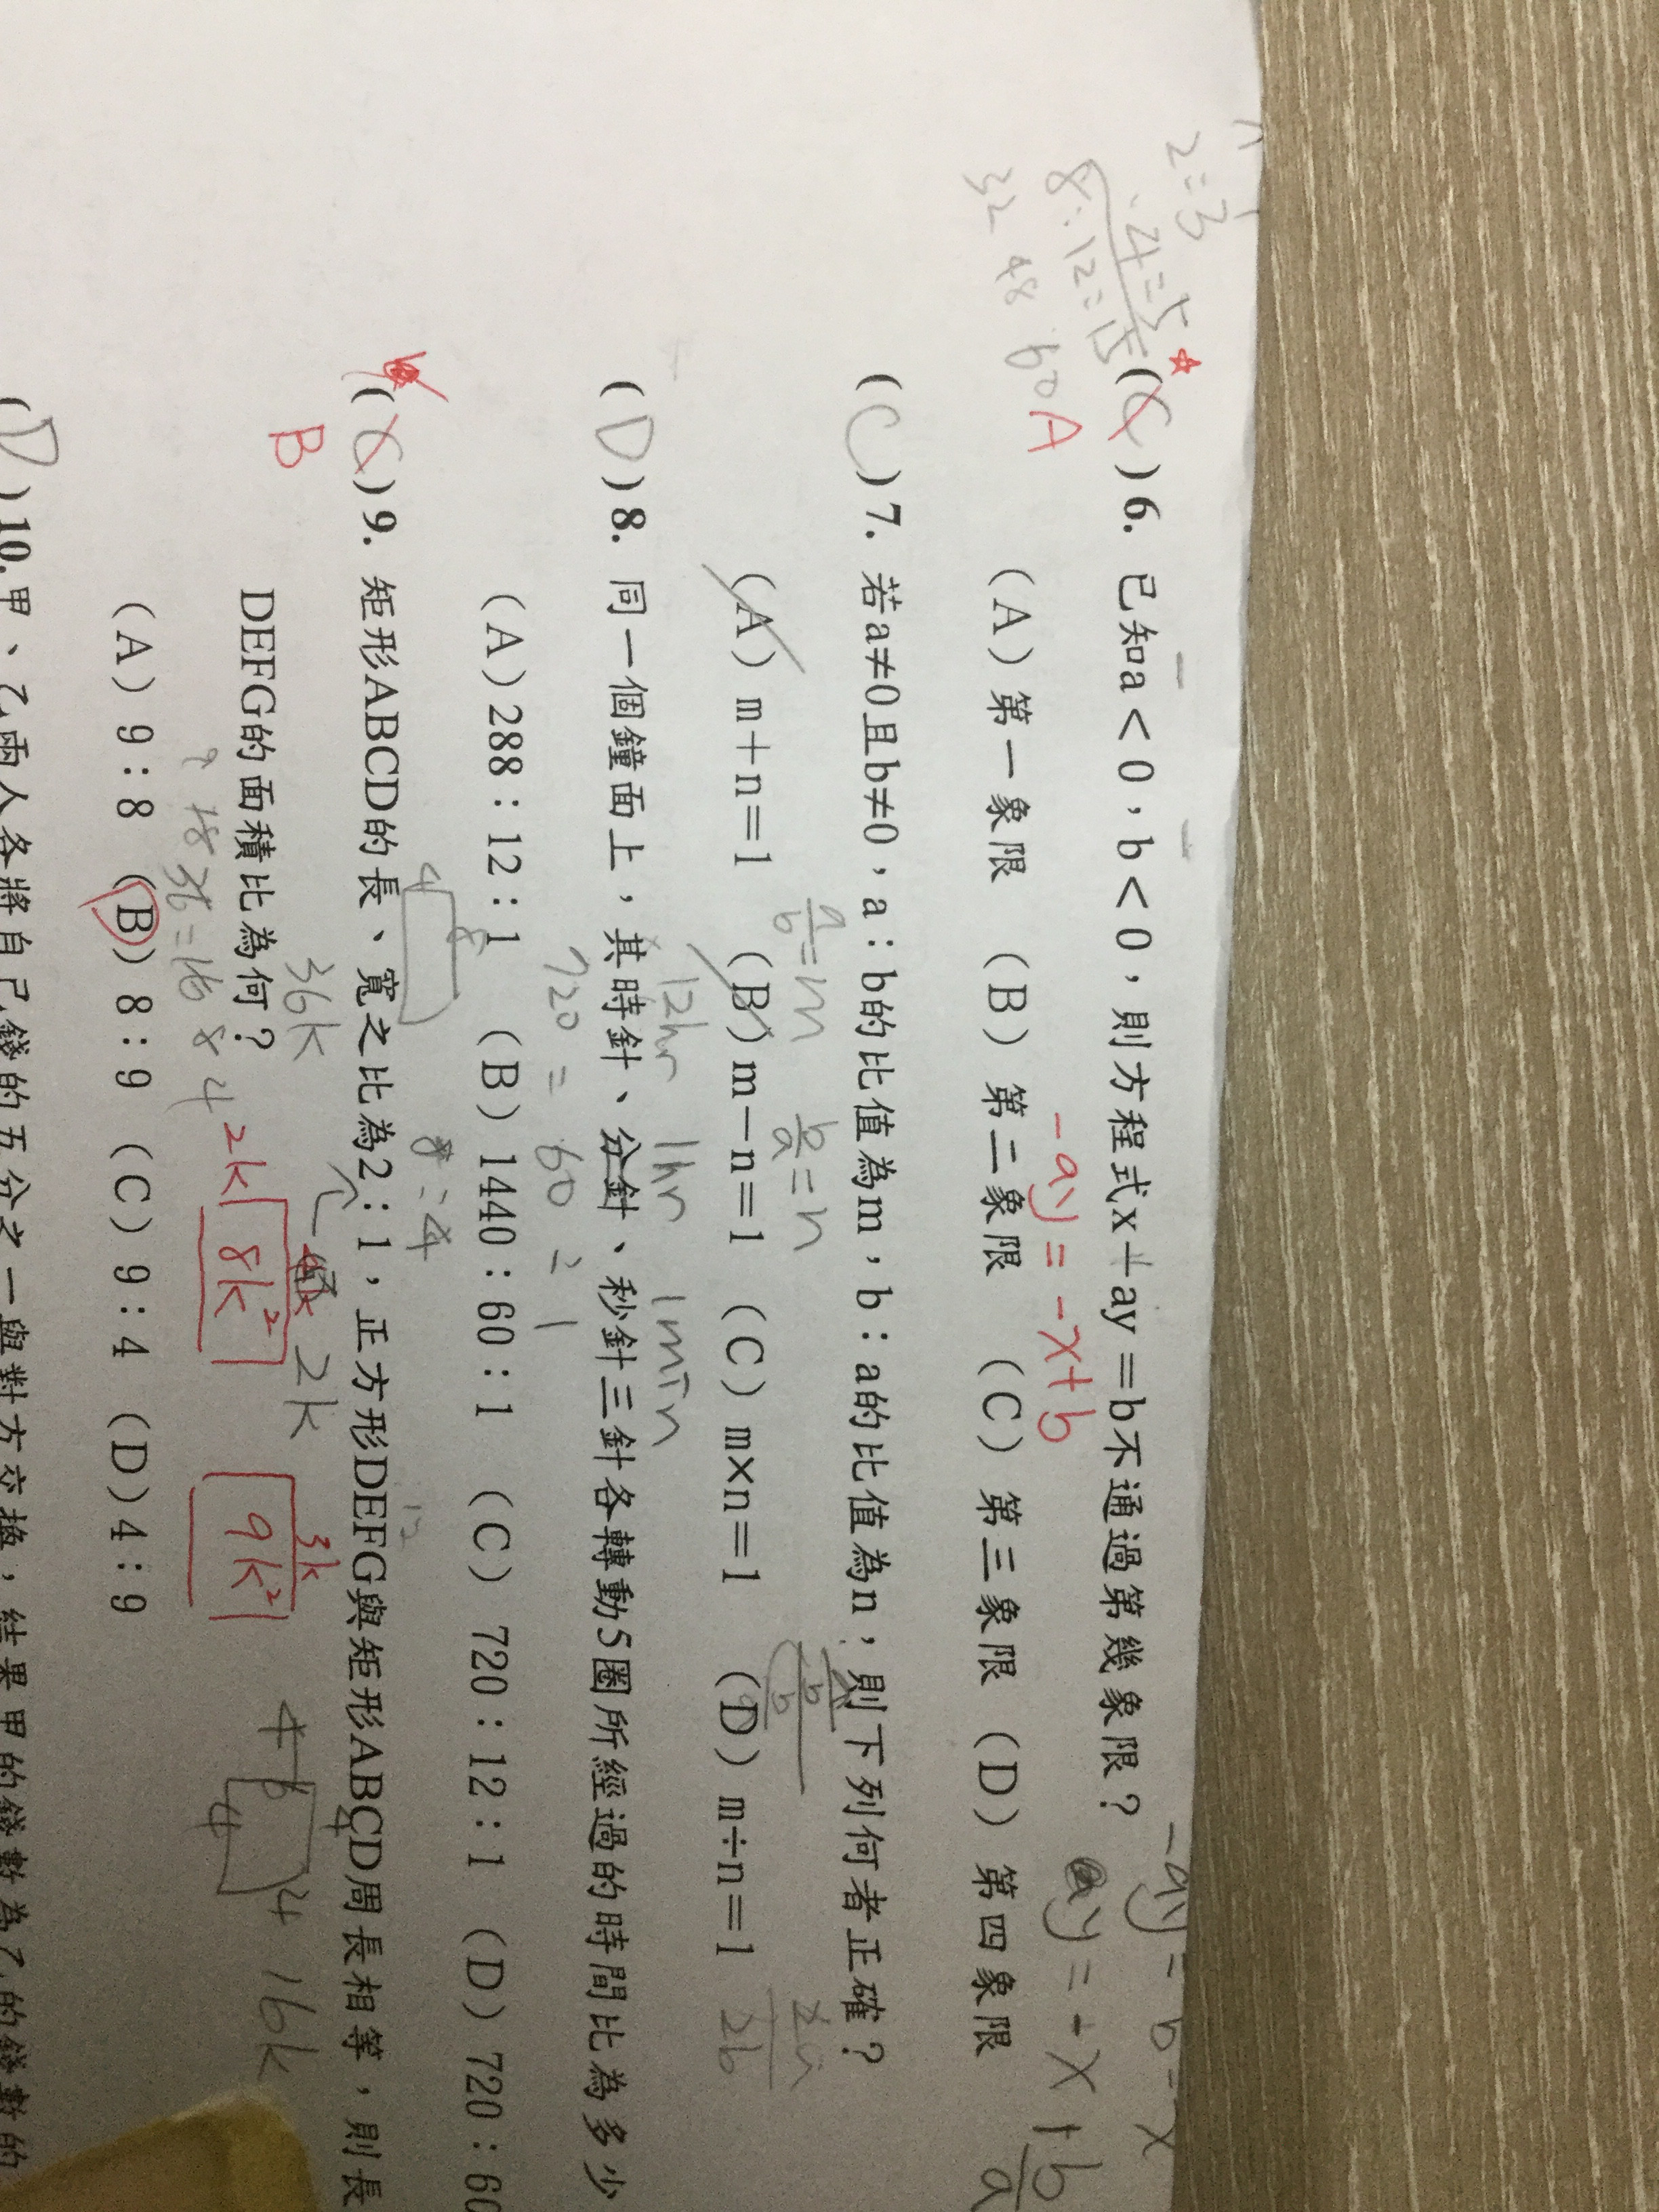 2 = 3
4 = 5
8 : 12 = 15
32 48 60
-ay = b - x
(C)6. 已知a<0,b<0,則方程式x-ay=b不通過第幾象限?
A
-ay = -x+b
(A)第一象限 (B)第二象限 (C)第三象限 (D)第四象限
(C)7. 若a≠0且b≠0,a:b的比值為m,b:a的比值為n,則下列何者正確?
a/b = m b/a = n
(A) m+n=1 (B) m-n=1 (C) m×n=1 (D) m÷n=1
12hr 1hr 1min
(D)8. 同一個鐘面上,其時針、分針、秒針三針各轉動5圈所經過的時間比為多少
720 = 60 = 1
(A)288:12:1 (B)1440:60:1 (C)720:12:1 (D)720:60
8:4
(C)9. 矩形ABCD的長、寬之比為2:1,正方形DEFG與矩形ABCD周長相等,則長
B
36k 2k 3k 4 16k
DEFG的面積比為何?
2k 8k² 9k²
18 36 = 16 8 4
(A)9:8 (B)8:9 (C)9:4 (D)4:9
(D)10.甲、乙兩人各將自己錢的五分之一與對方交換,結果甲的錢數為乙的錢數的